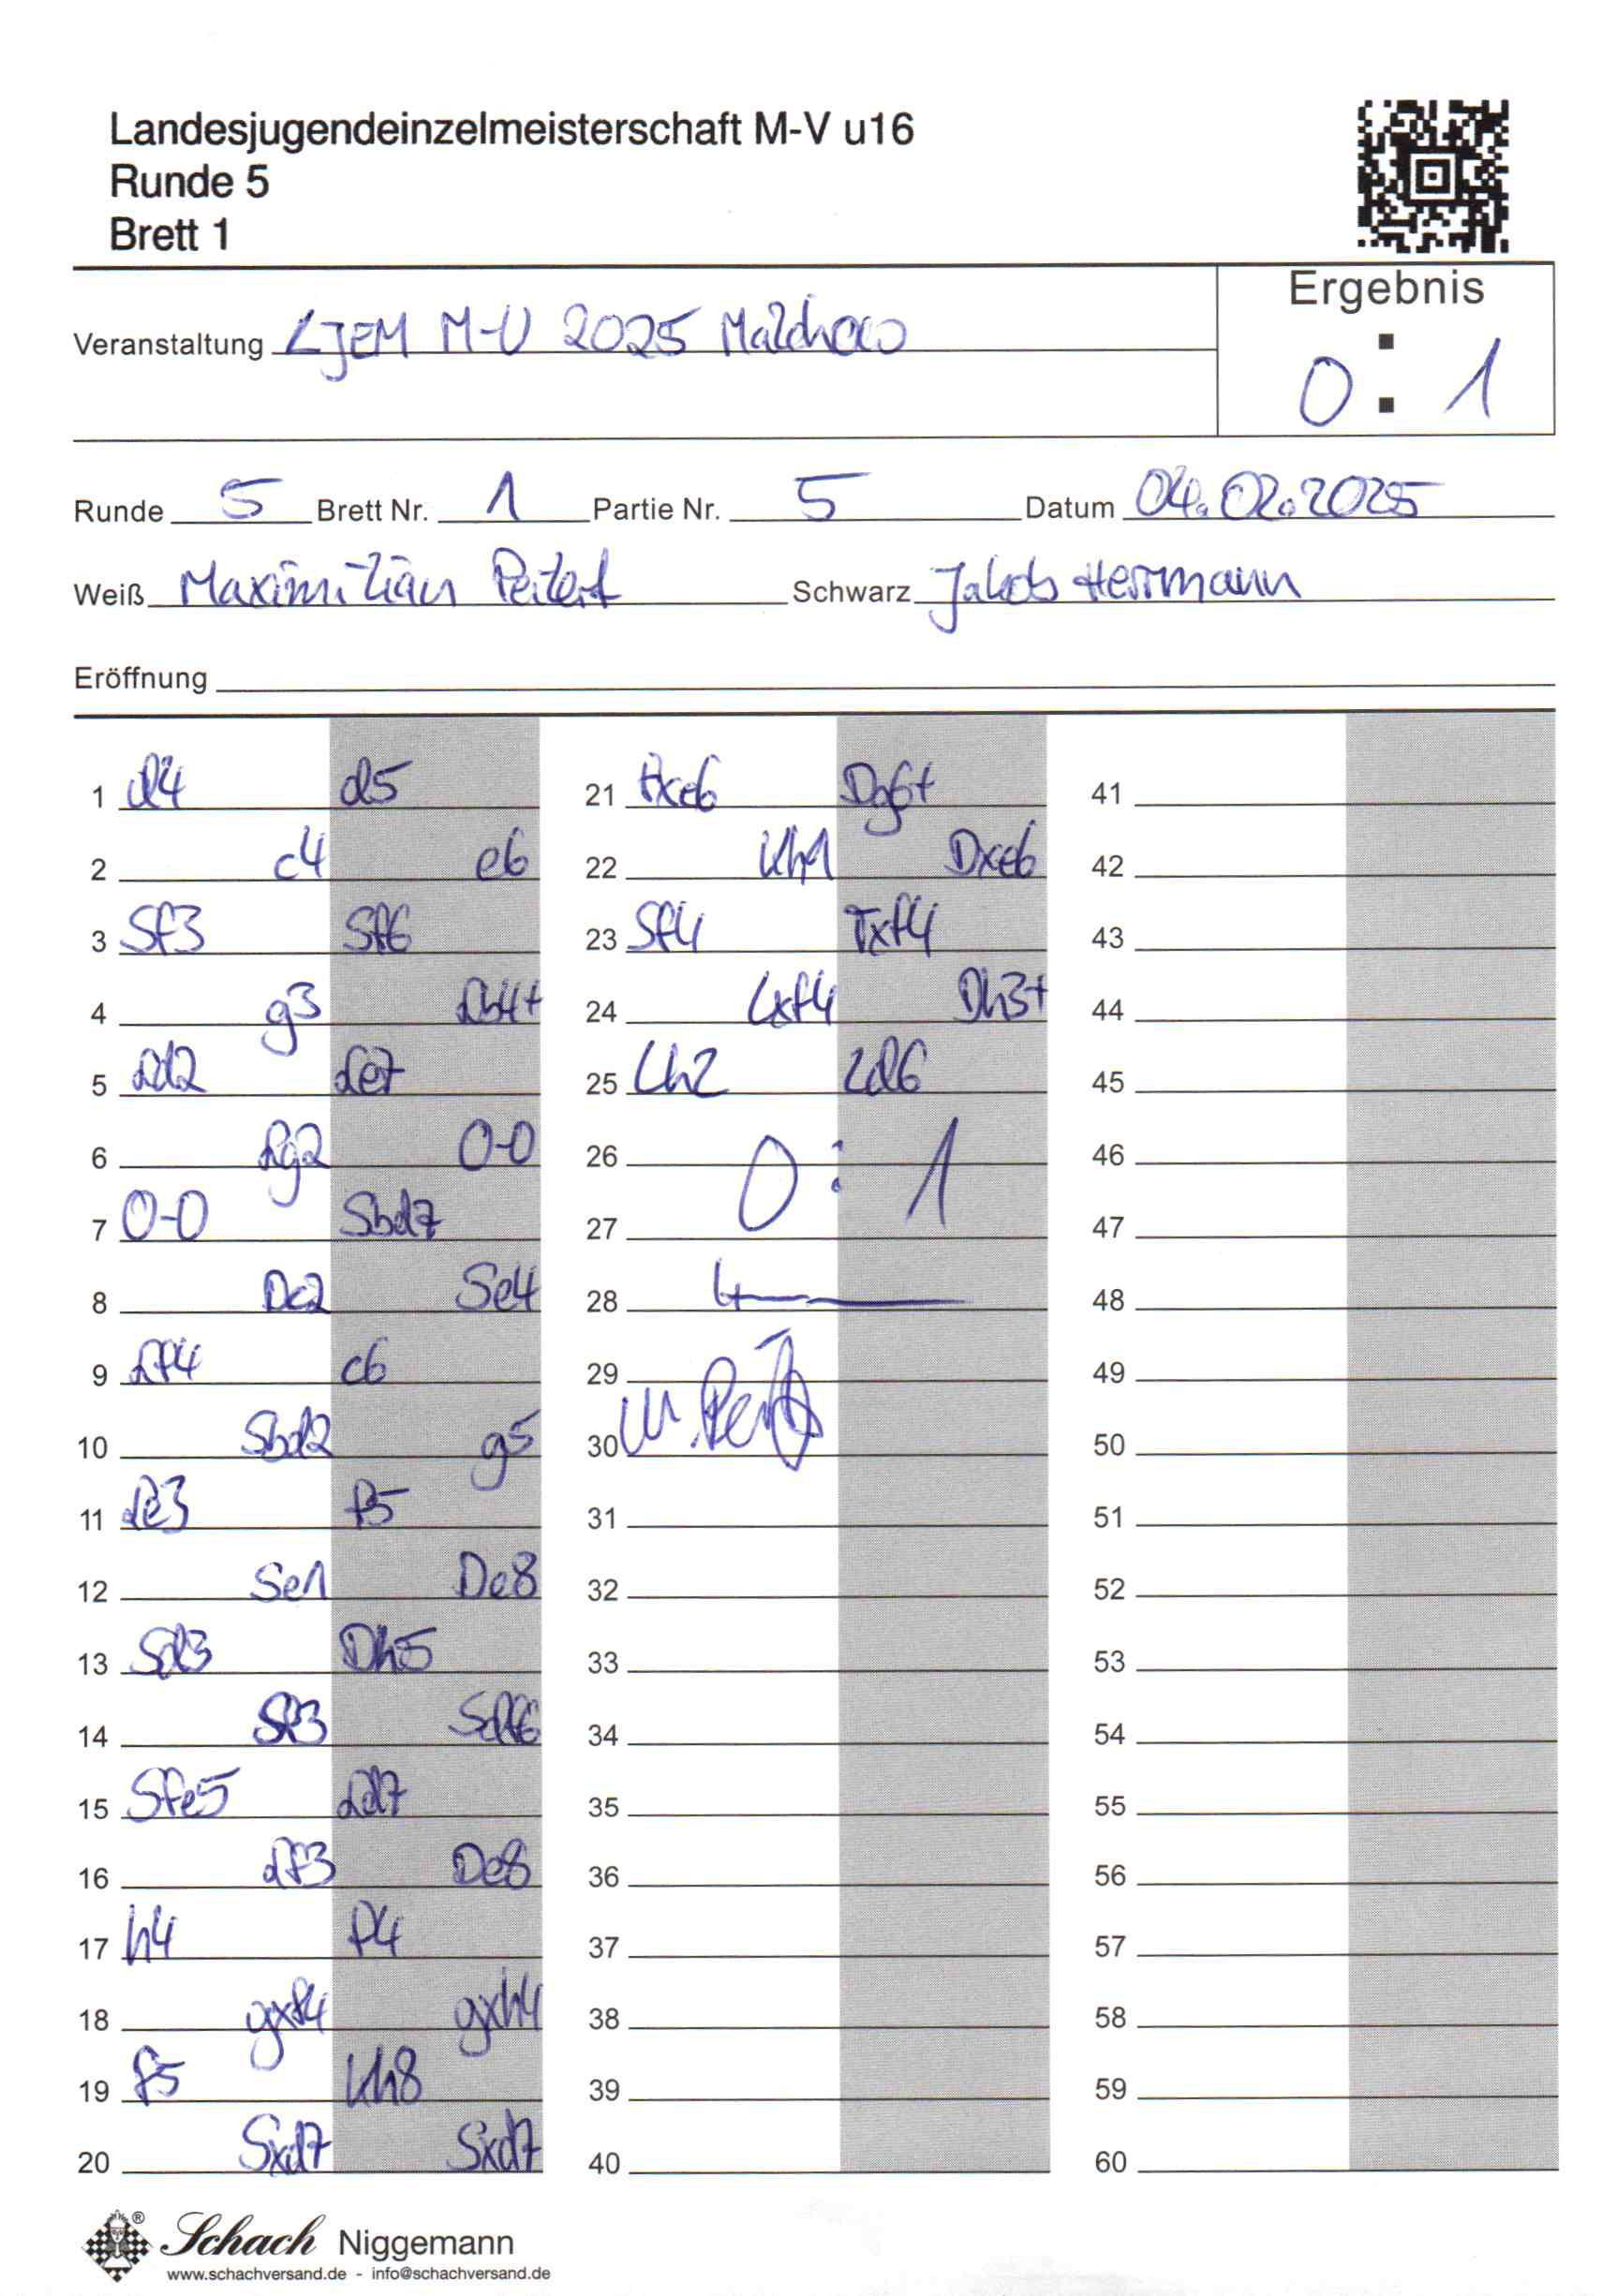 Landesjugendeinzelmeisterschaft M-V u16
Runde 5
Brett 1
Ergebnis
0 : 1
Veranstaltung LJEM M-V 2025 Malchow
Runde 5 Brett Nr. 1 Partie Nr. 5 Datum 04.02.2025
Weiß Maximilian Schwarz Jakob Herrmann
Eröffnung
1 d4 d5
2 c4 e6
3 Sf3 Sf6
4 g3 Lb4+
5 Ld2 Le7
6 Lg2 0-0
7 0-0 Sbd7
8 Dc2 Se4
9 Lf4 c6
10 Sbd2 g5
11 Le3 f5
12 Se1 De8
13 Sd3 Dh5
14 Sf3 Sdf6
15 Sfe5 Ld7
16 Lf3 De8
17 h4 f4
18 gxf4 gxh4
19 f5 Kh8
20 Sxd7 Sxd7
21 fxe6 Dg6+
22 Kh1 Dxe6
23 Sf4 Txf4
24 Lxf4 Dh3+
25 Lh2 Ld6
26 0 : 1
27
28
29
30
31
32
33
34
35
36
37
38
39
40
41
42
43
44
45
46
47
48
49
50
51
52
53
54
55
56
57
58
59
60
® Schach Niggemann
www.schachversand.de - info@schachversand.de